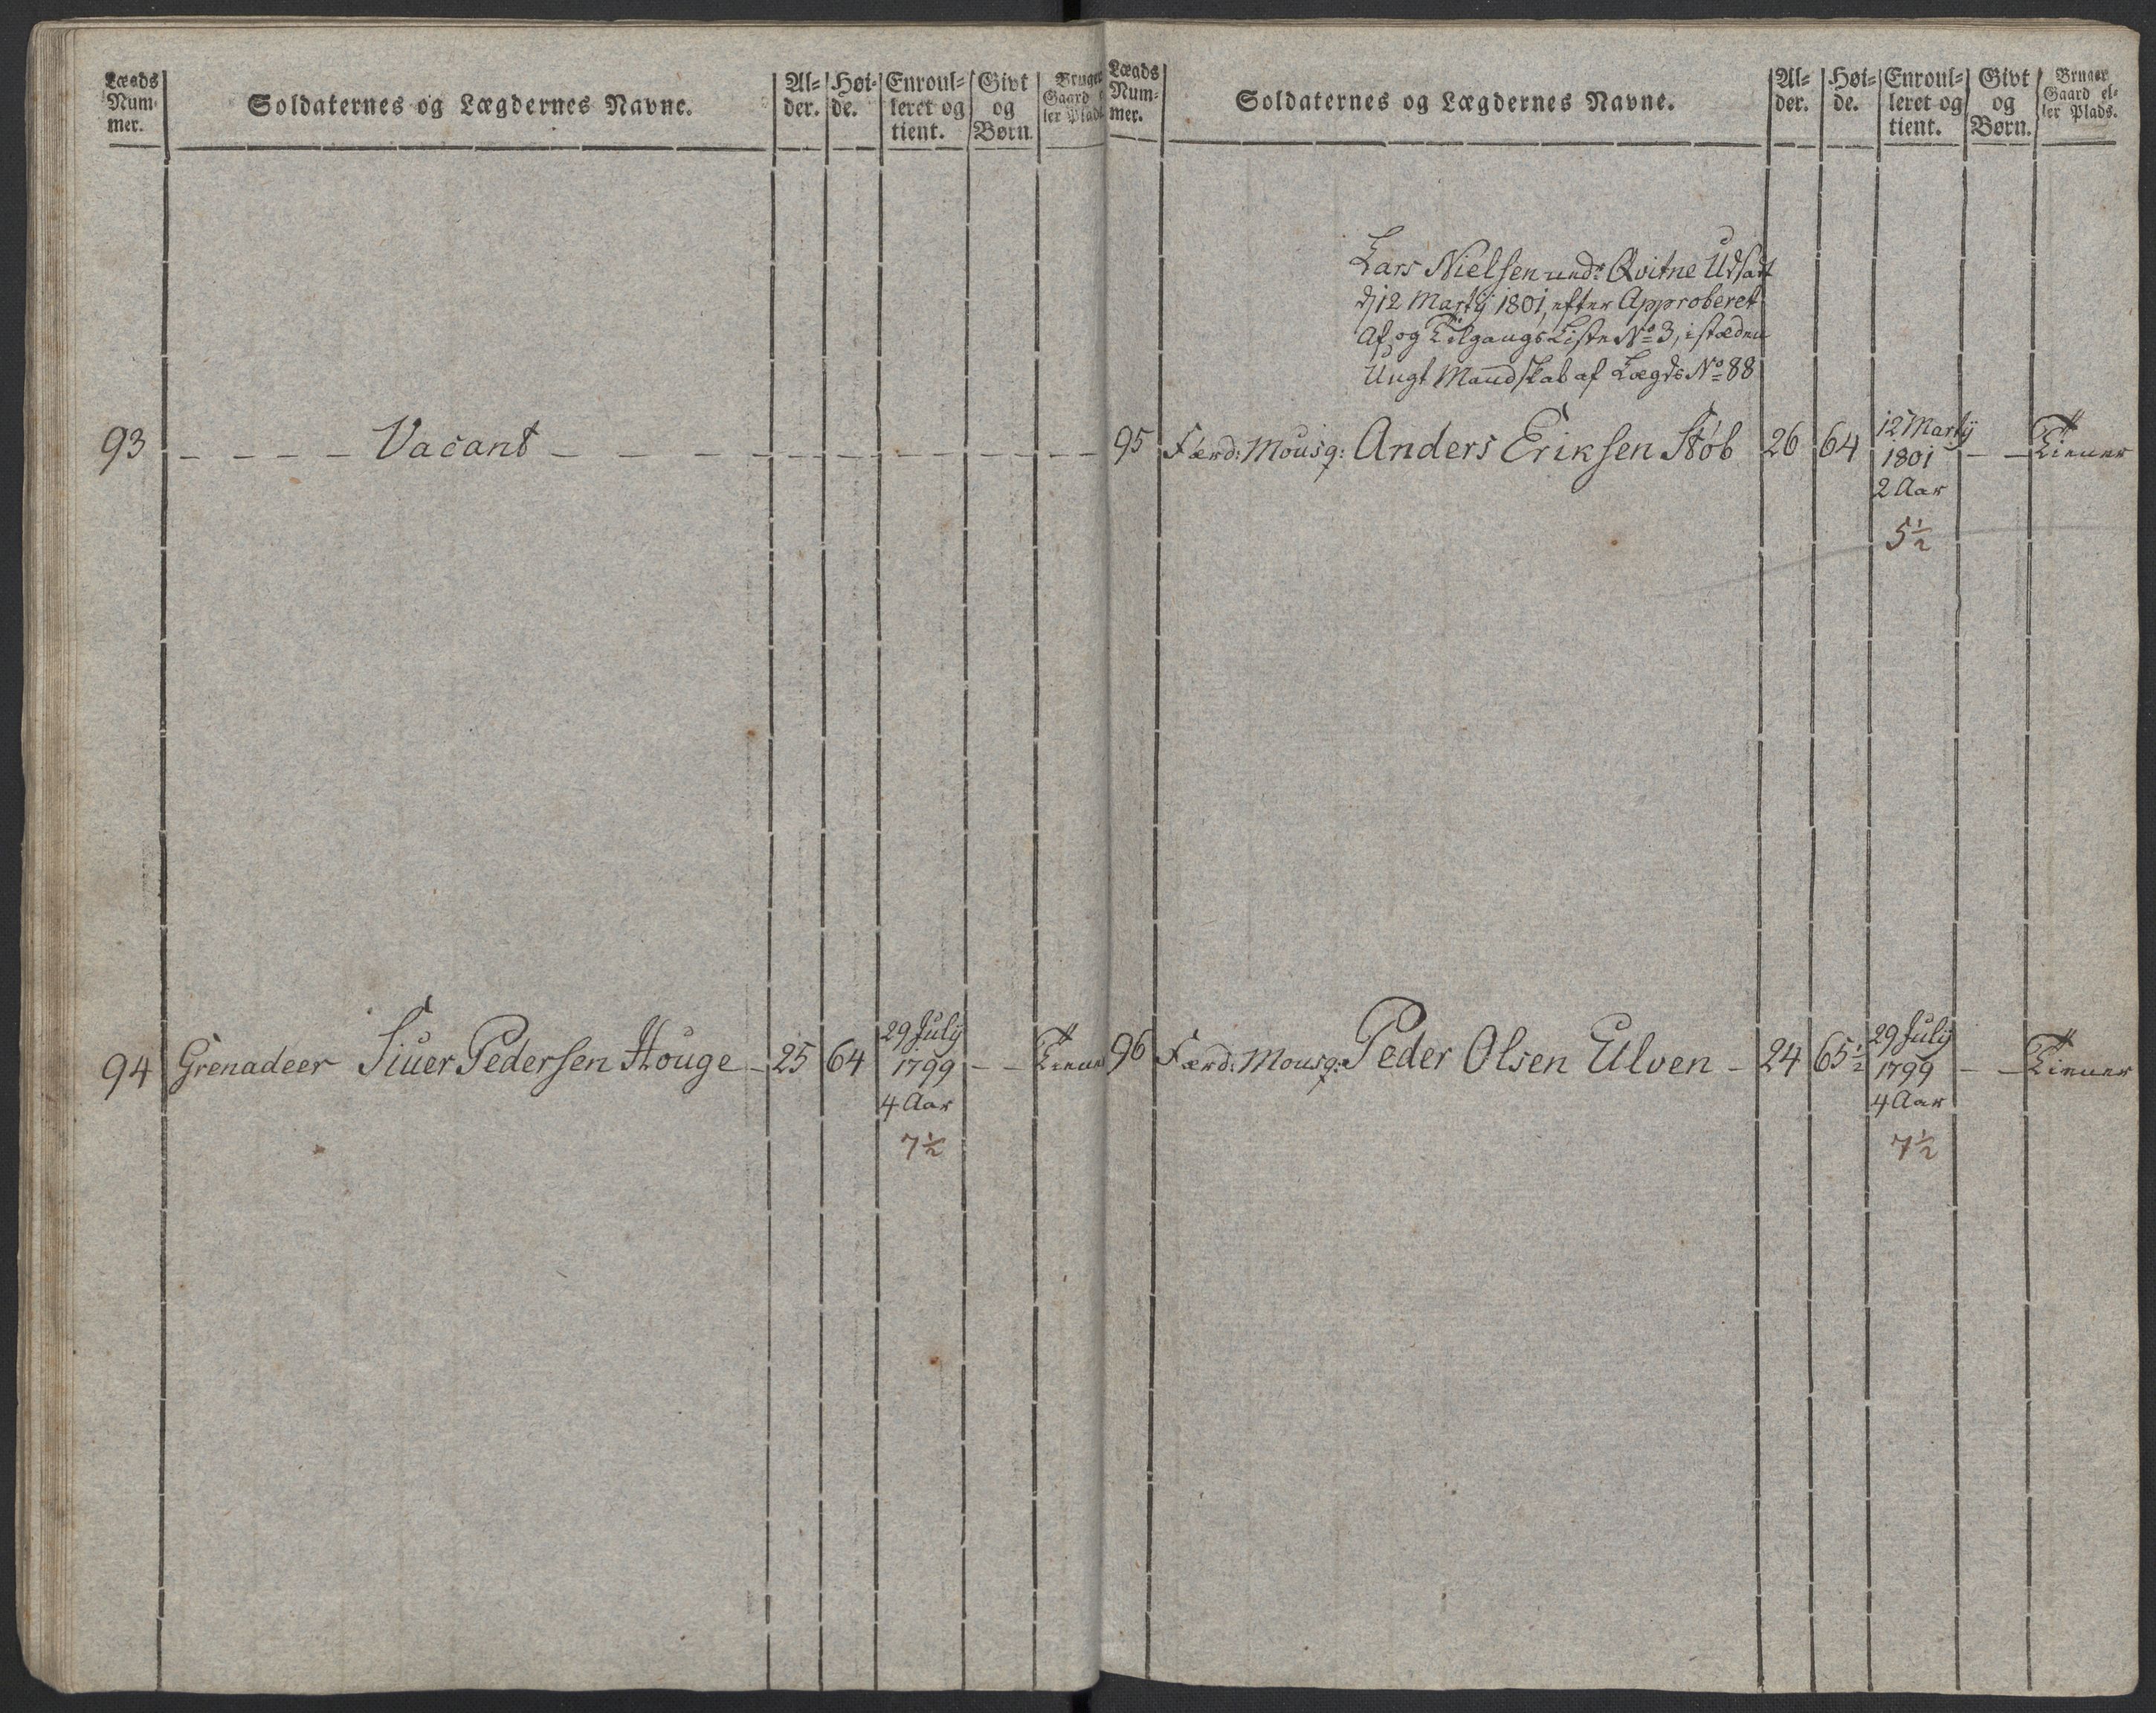 Lægds Num- mer.
Soldaternes og Lægdernes Navne.
Al- der.
Høi- de.
Enroul- leret og tient.
Givt og Børn.
Bruger Gaard el- ler Plads
93 - - - - Vacant - - - - - - - - - -
94 Grenadeer Siuer Pedersen Houge - 25 64 29 Julÿ 1799 - - Tiener
4 Aar
7½
Lægds Num- mer.
Soldaternes og Lægdernes Navne.
Al- der.
Høi- de.
Enroul- leret og tient.
Givt og Børn.
Bruger Gaard el- ler Plads.
Lars Nielsen und: Qvitne Udsat
d 12 Martÿ 1801, efter Approberet
Af og Tilgangs Liste No 3, istæden
Ungt Mandskab af Lægds No 88
95 Færd: Mousq: Anders Eriksen Støb 26 64 12 Martÿ 1801 - - Tiener
2 Aar
5½
96 Færd: Mousq: Peder Olsen Ulven - 24 65½ 29 Julÿ 1799 - - Tiener
4 Aar
7½